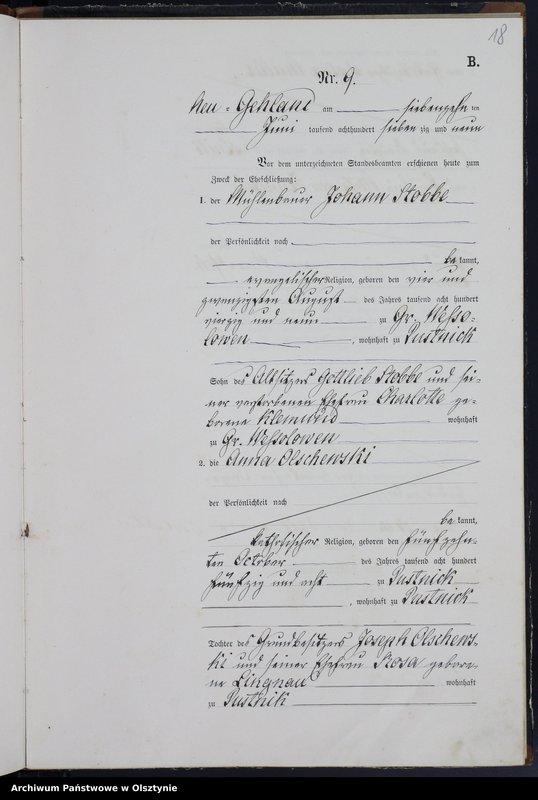 18
B.
Nr. 9.
Neu-Gehland am siebenzehn ten
Juni tausend achthundert sieben zig und neun
Vor dem unterzeichneten Standesbeamten erschienen heute zum
Zweck der Eheschließung:
1. der Mühlenbauer Johann Stobbe
der Persönlichkeit nach
be kannt,
evangelischer Religion, geboren den vier und
zwanzigsten August des Jahres tausend acht hundert
vierzig und neun zu Gr. Wesso-
lowen, wohnhaft zu Pustnick
Sohn des Altsitzers Gottlieb Stobbe und sei-
ner verstorbenen Ehefrau Charlotte ge-
borene wohnhaft
zu Gr. Wessolowen
2. die Anna Olschewski
der Persönlichkeit nach
be kannt,
katholischer Religion, geboren den fünfzehn-
ten October des Jahres tausend acht hundert
fünfzig und acht zu Pustnick
, wohnhaft zu Pustnick
Tochter des Grundbesitzers Joseph Olschews-
ki und seiner Ehefrau Rosa gebore-
ne Lingnau wohnhaft
zu Pustnik
Archiwum Państwowe w Olsztynie